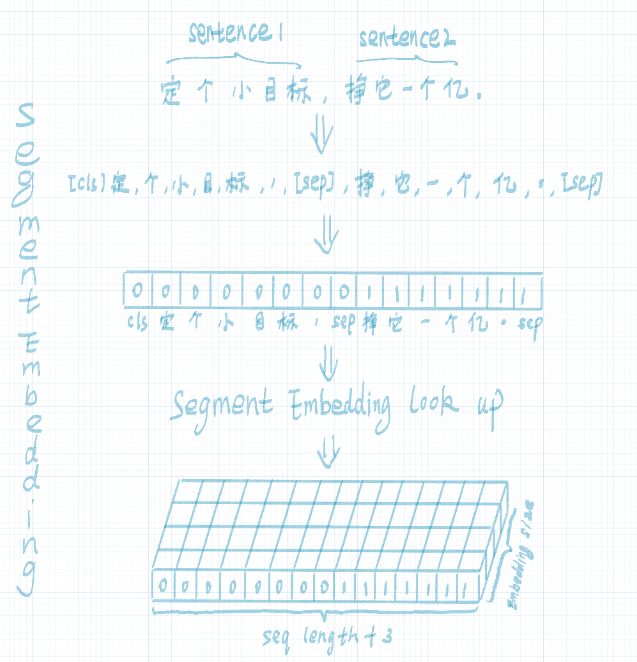 Segment Embedding
sentence1 sentence2
定个小目标，挣它一个亿.
[cls]定,个,小,目,标,,,[sep],挣,它,一,个,亿,。,[sep]
0 0 0 0 0 0 0 0 1 1 1 1 1 1 1
cls 定 个 小 目 标 , sep 挣 它 一 个 亿 。 sep
Segment Embedding Look up
0 0 0 0 0 0 0 0 1 1 1 1 1 1 1
Embedding size
seq length + 3